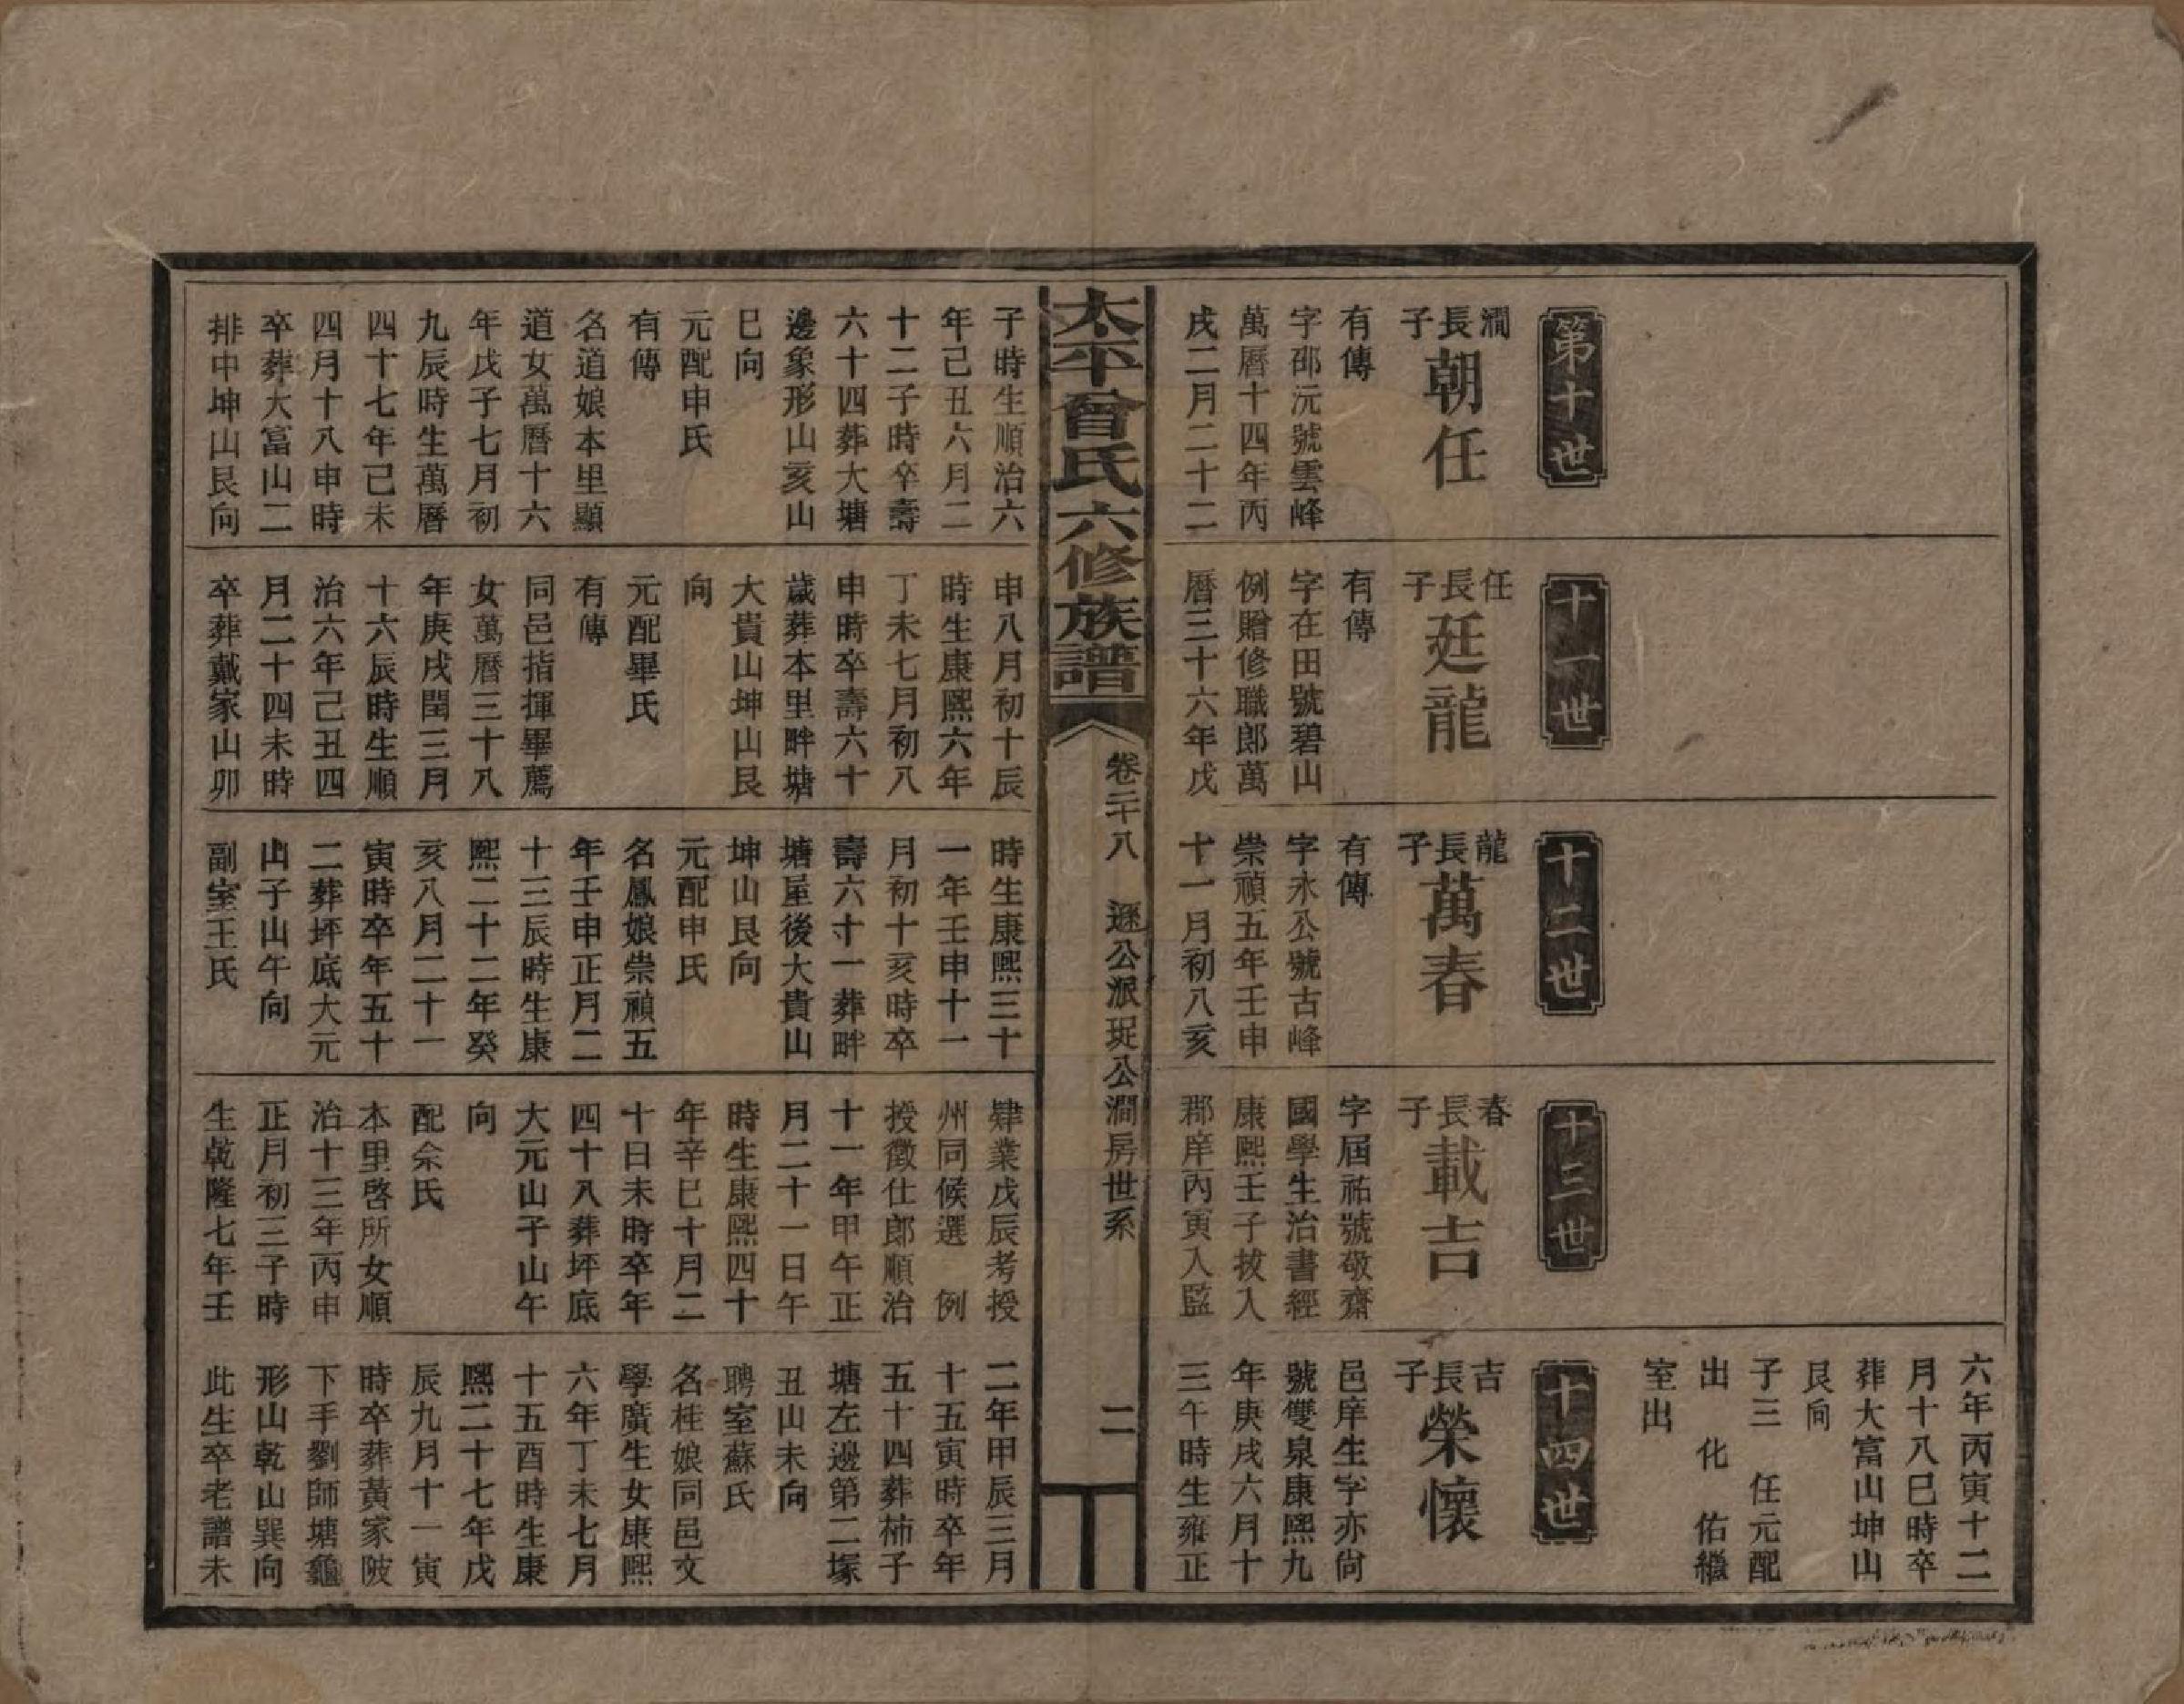 第十世
澗長子
朝任
有傳
字邵沅號雲峰
萬曆十四年丙
戌二月二十二
十一世
任長子
廷龍
有傳
字在田號碧山
例贈修職郎萬
曆三十六年戊
十二世
龍長子
萬春
有傳
字永公號古峰
崇禎五年壬申
十一月初八亥
十三世
春長子
載吉
字屆祐號敬齋
國學生治書經
康熙壬子拔入
郡庠丙寅入監
六年丙寅十二
月十八巳時卒
葬大富山坤山
艮向
子三 任元配
出 化 佑繼
室出
十四世
吉長子
榮懷
邑庠生字亦尙
號雙泉康熙九
年庚戌六月十
三午時生雍正
太平曾氏六修族譜
卷二十八 遜公派珽公澗房世系
二
子時生順治六
年己丑六月二
十二子時卒壽
六十四葬大塘
邊象形山亥山
巳向
元配申氏
有傳
名道娘本里顯
道女萬曆十六
年戊子七月初
九辰時生萬曆
四十七年己未
四月十八申時
卒葬大富山二
排中坤山艮向
申八月初十辰
時生康熙六年
丁未七月初八
申時卒壽六十
歲葬本里畔塘
大貴山坤山艮
向
元配畢氏
有傳
同邑指揮畢薦
女萬曆三十八
年庚戌閏三月
十六辰時生順
治六年己丑四
月二十四未時
卒葬戴家山卯
時生康熙三十
一年壬申十一
月初十亥時卒
壽六十一葬畔
塘屋後大貴山
坤山艮向
元配申氏
名鳳娘崇禎五
年壬申正月二
十三辰時生康
熙二十二年癸
亥八月二十一
寅時卒年五十
二葬坪底大元
山子山午向
副室王氏
肄業戊辰考授
州同候選 例
授徵仕郎順治
十一年甲午正
月二十一日午
時生康熙四十
年辛巳十月二
十日未時卒年
四十八葬坪底
大元山子山午
向
配佘氏
本里啓所女順
治十三年丙申
正月初三子時
生乾隆七年壬
二年甲辰三月
十五寅時卒年
五十四葬柿子
塘左邊第二塚
丑山未向
聘室蘇氏
名桂娘同邑文
學廣生女康熙
六年丁未七月
十五酉時生康
熙二十七年戊
辰九月十一寅
時卒葬黃家陂
下手劉師塘龜
形山乾山巽向
此生卒老譜未